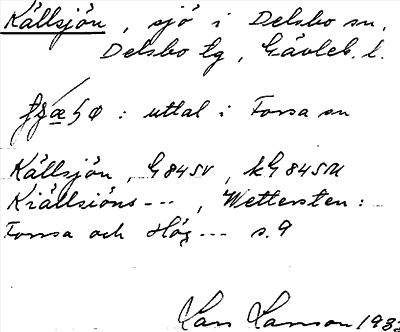 Källsjön, sjö i Delsbo sn,
Delsbo tg, Gävleb. l.
: uttal i Forsa sn
Källsjön, G84SV, kG84SU
Kiällsiöns ---, Wettersten:
Forssa och Hög --- s. 9
Lars Larsson